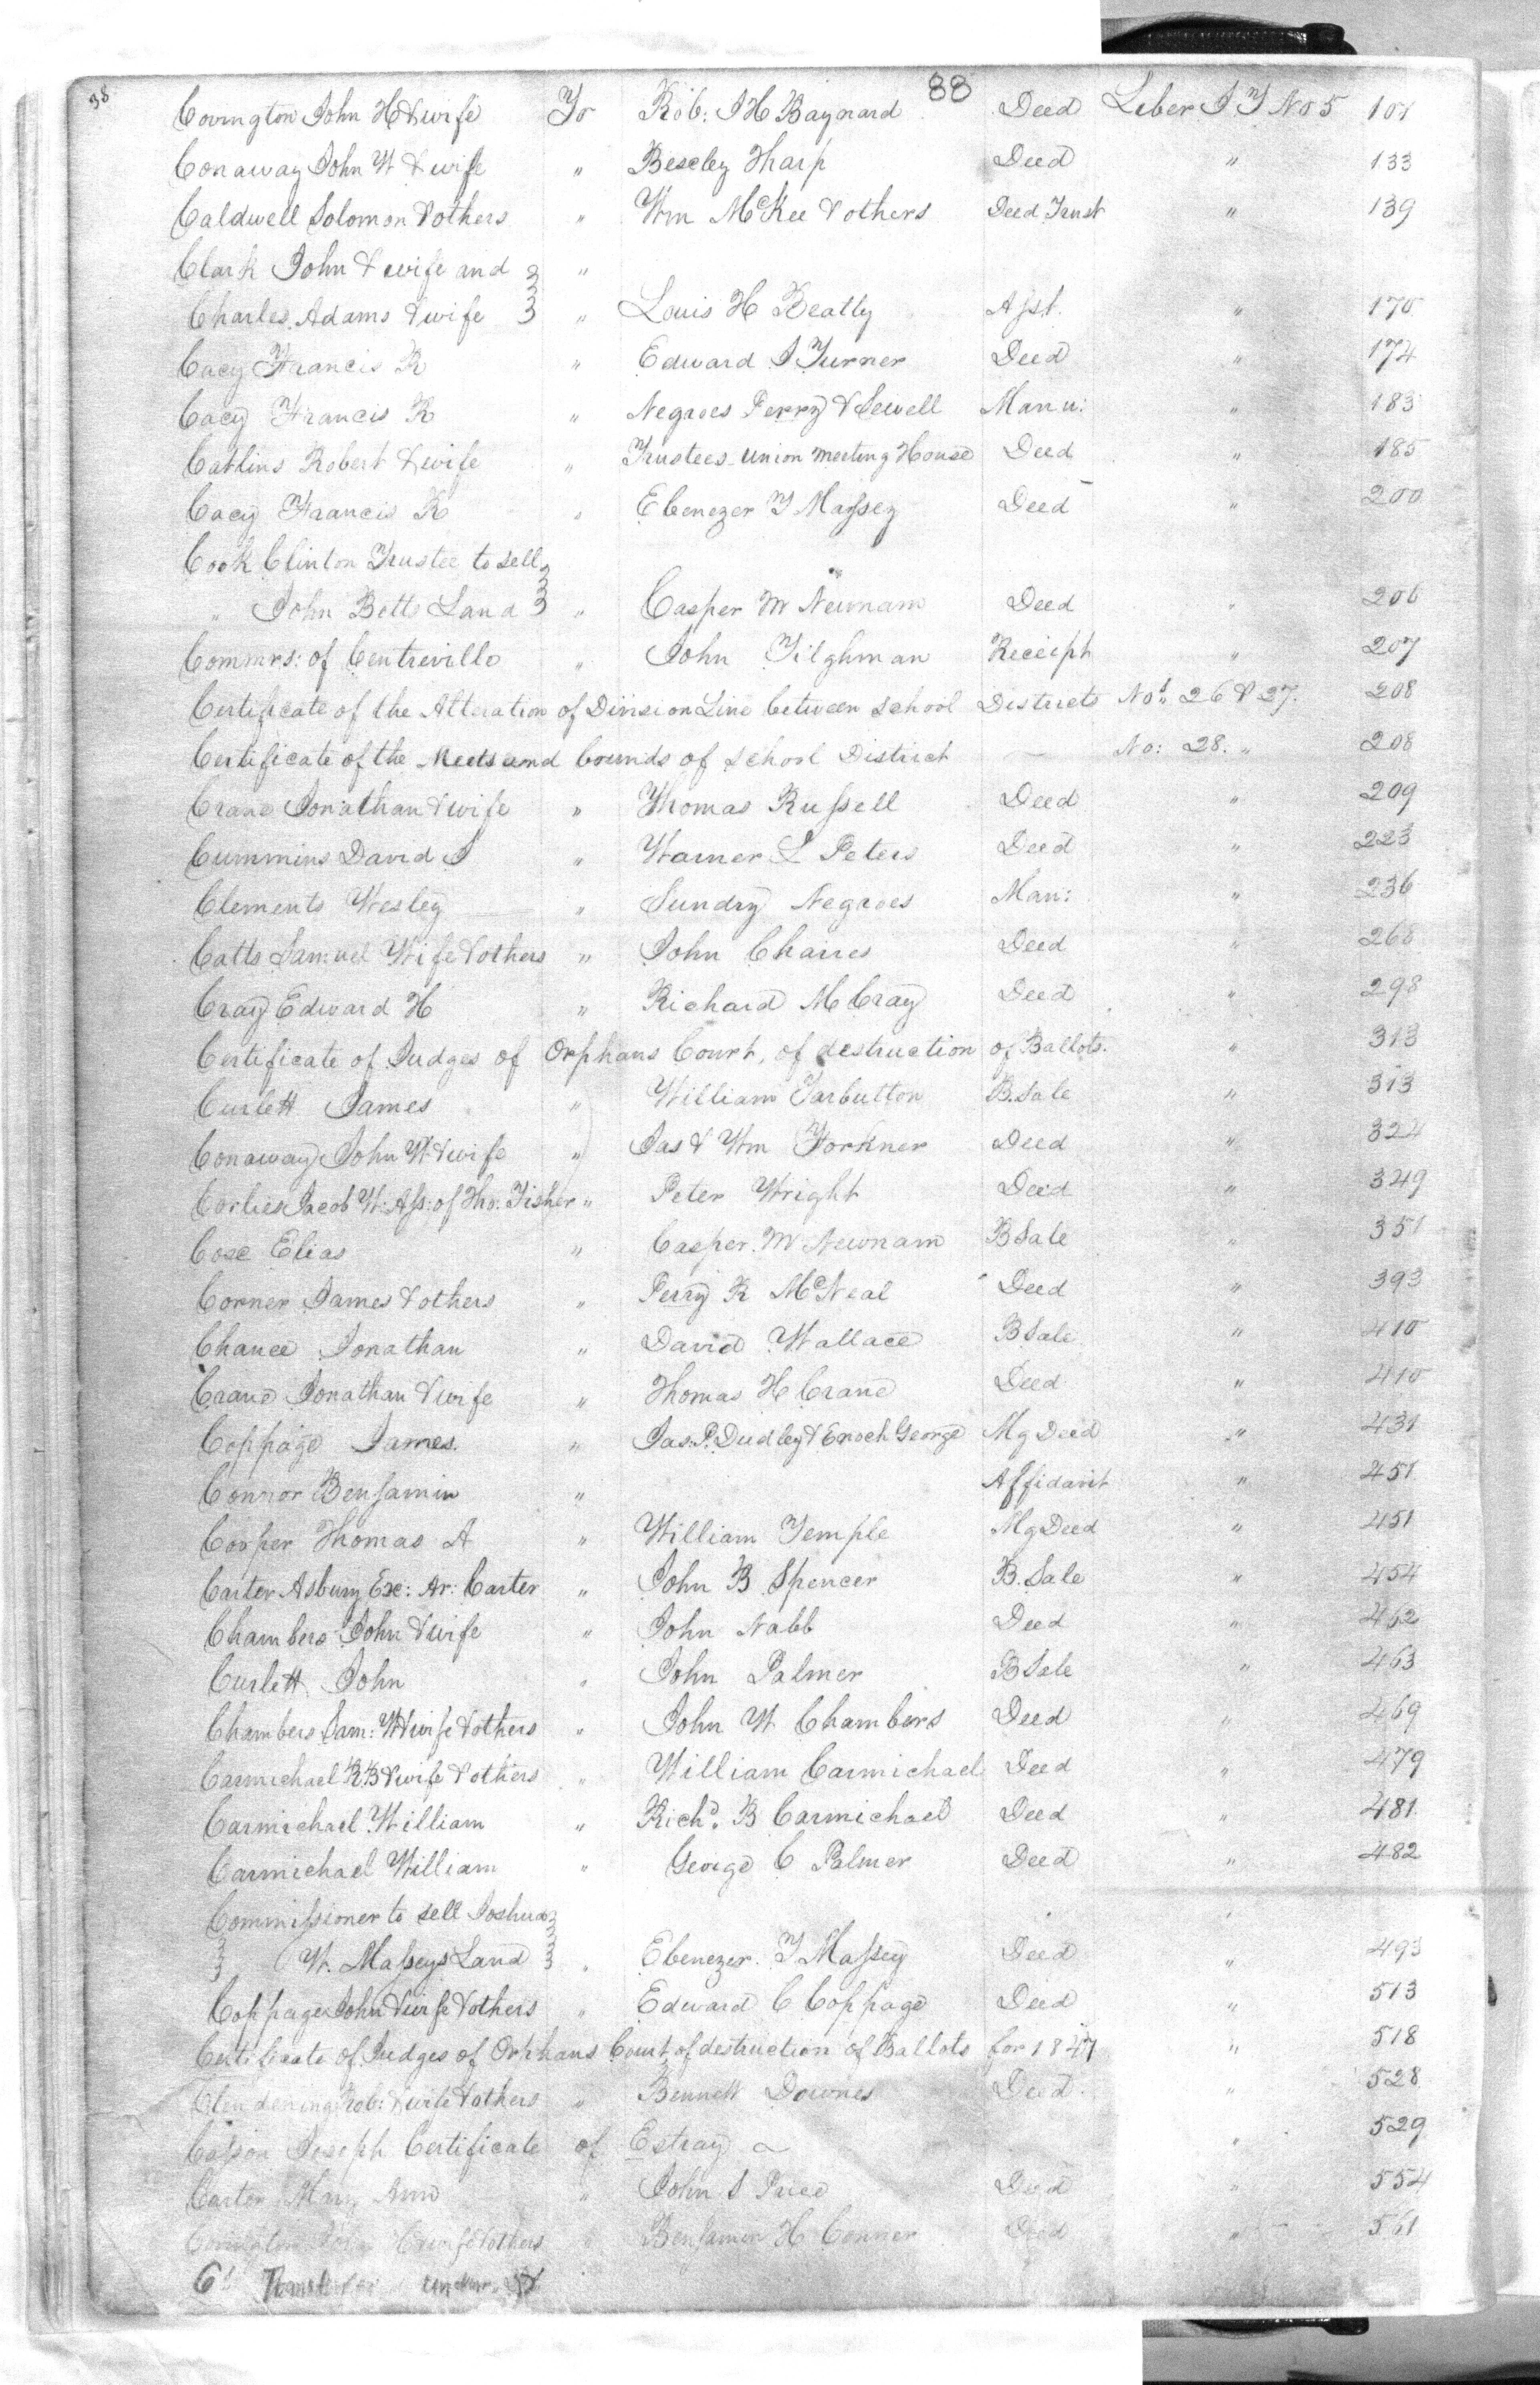 38 88
Covington John H & wife To Rob: J H Baynard Deed Liber J T No 5 101
Conaway John W & wife " Beseley Tharp Deed " 133
Caldwell Solomon & others " Wm McKee & others Deed Trust " 139
Clark John & wife and "
Charles Adams & wife " Louis H Beatty Asst. " 170
Cacy Francis R " Edward J Turner Deed " 174
Cacy Francis R " Negroes Perry & Sewell Manu: " 183
Catlins Robert & wife " Trustees Union Meeting House Deed " 185
Cacy Francis R " Ebenezer T Massey Deed " 200
Cook Clinton Trustee to sell
" John Betts Land " Casper W Newnam Deed " 206
Commrs: of Centreville " John Tilghman Receipt " 207
Certificate of the Alteration of Division Line between School Districts Nos. 26 & 27. 208
Certificate of the Meets and bounds of School District — No: 28. " 208
Crane Jonathan & wife " Thomas Russell Deed " 209
Cummins David J " Warner L Peters Deed " 223
Clements Wesley " Sundry Negroes Man: " 236
Catts Samuel Wife & others " John Chaires Deed " 268
Cray Edward H " Richard M Cray Deed " 298
Certificate of Judges of Orphans Court, of destruction of Ballots. " 313
Curlett James " William Tarbutton B. Sale " 313
Conaway John W & wife " Jas & Wm Forkner Deed " 324
Corlies Jacob W: Ass: of Tho: Fisher " Peter Wright Deed " 349
Cox Elias " Casper. W Newnam B Sale " 351
Corner James & others " Perry R McNeal Deed " 393
Chance Jonathan " David Wallace B Sale " 410
Crane Jonathan & wife " Thomas H Crane Deed " 410
Coppage James. " Jas. P. Dudley & Enoch George Mg Deed " 431
Connor Benjamin " Affidavit " 451
Cooper Thomas A " William Temple Mg Deed " 451
Carter Asbury Ex: Ar: Carter " John B Spencer B. Sale " 454
Chambers John & wife " John Nabb Deed " 462
Curlett John " John Palmer B Sale " 463
Chambers Sam: W & wife & others " John W Chambers Deed " 469
Carmichael R B & wife & others " William Carmichael Deed " 479
Carmichael William " Richd. B Carmichael Deed " 481
Carmichael William " George C Palmer Deed " 482
Commissioner to sell Joshua
W. Masseys Land " Ebenezer. T Massey Deed " 493
Coppage John & wife & others " Edward C Coppage Deed " 513
Certificate of Judges of Orphans Court of destruction of Ballots for 1847 " 518
Clendening Rob: & wife & others " Bennett Downes Deed " 528
Casson Joseph Certificate of Estray " 529
Carter Mary Ann " John S Price Deed " 554
Covington John H & wife & others " Benjamin H Conner Deed " 561